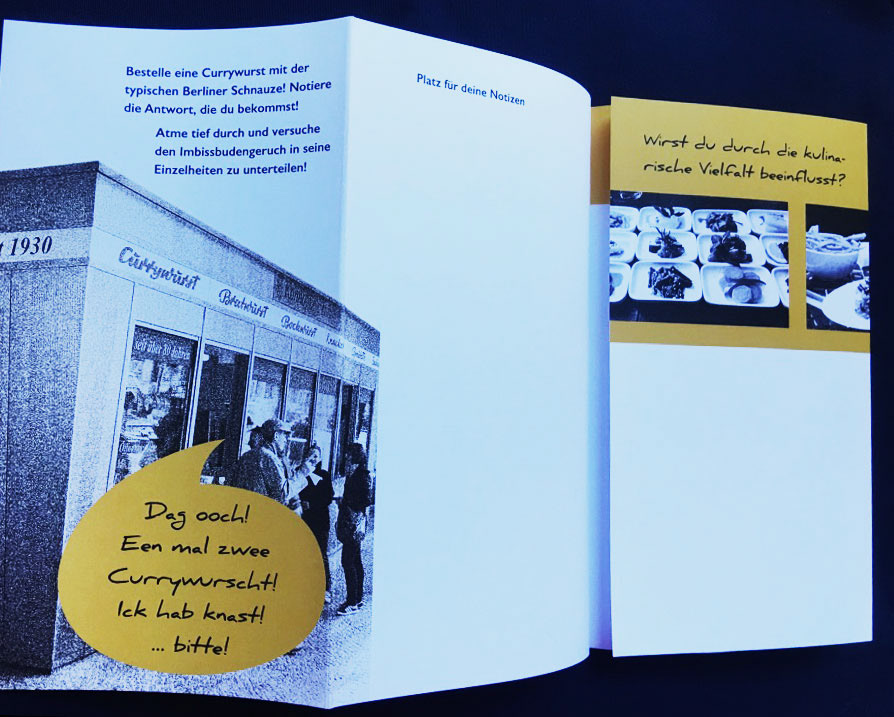 Bestelle eine Currywurst mit der
typischen Berliner Schnauze! Notiere
die Antwort, die du bekommst!
Atme tief durch und versuche
den Imbissbudengeruch in seine
Einzelheiten zu unterteilen!
1930
Currywurst Bratwurst Bockwurst
Seit über 80 Jahren
Dag ooch!
Een mal zwee
Currywurscht!
Ick hab knast!
... bitte!
Platz für deine Notizen
Wirst du durch die kulina-
rische Vielfalt beeinflusst?